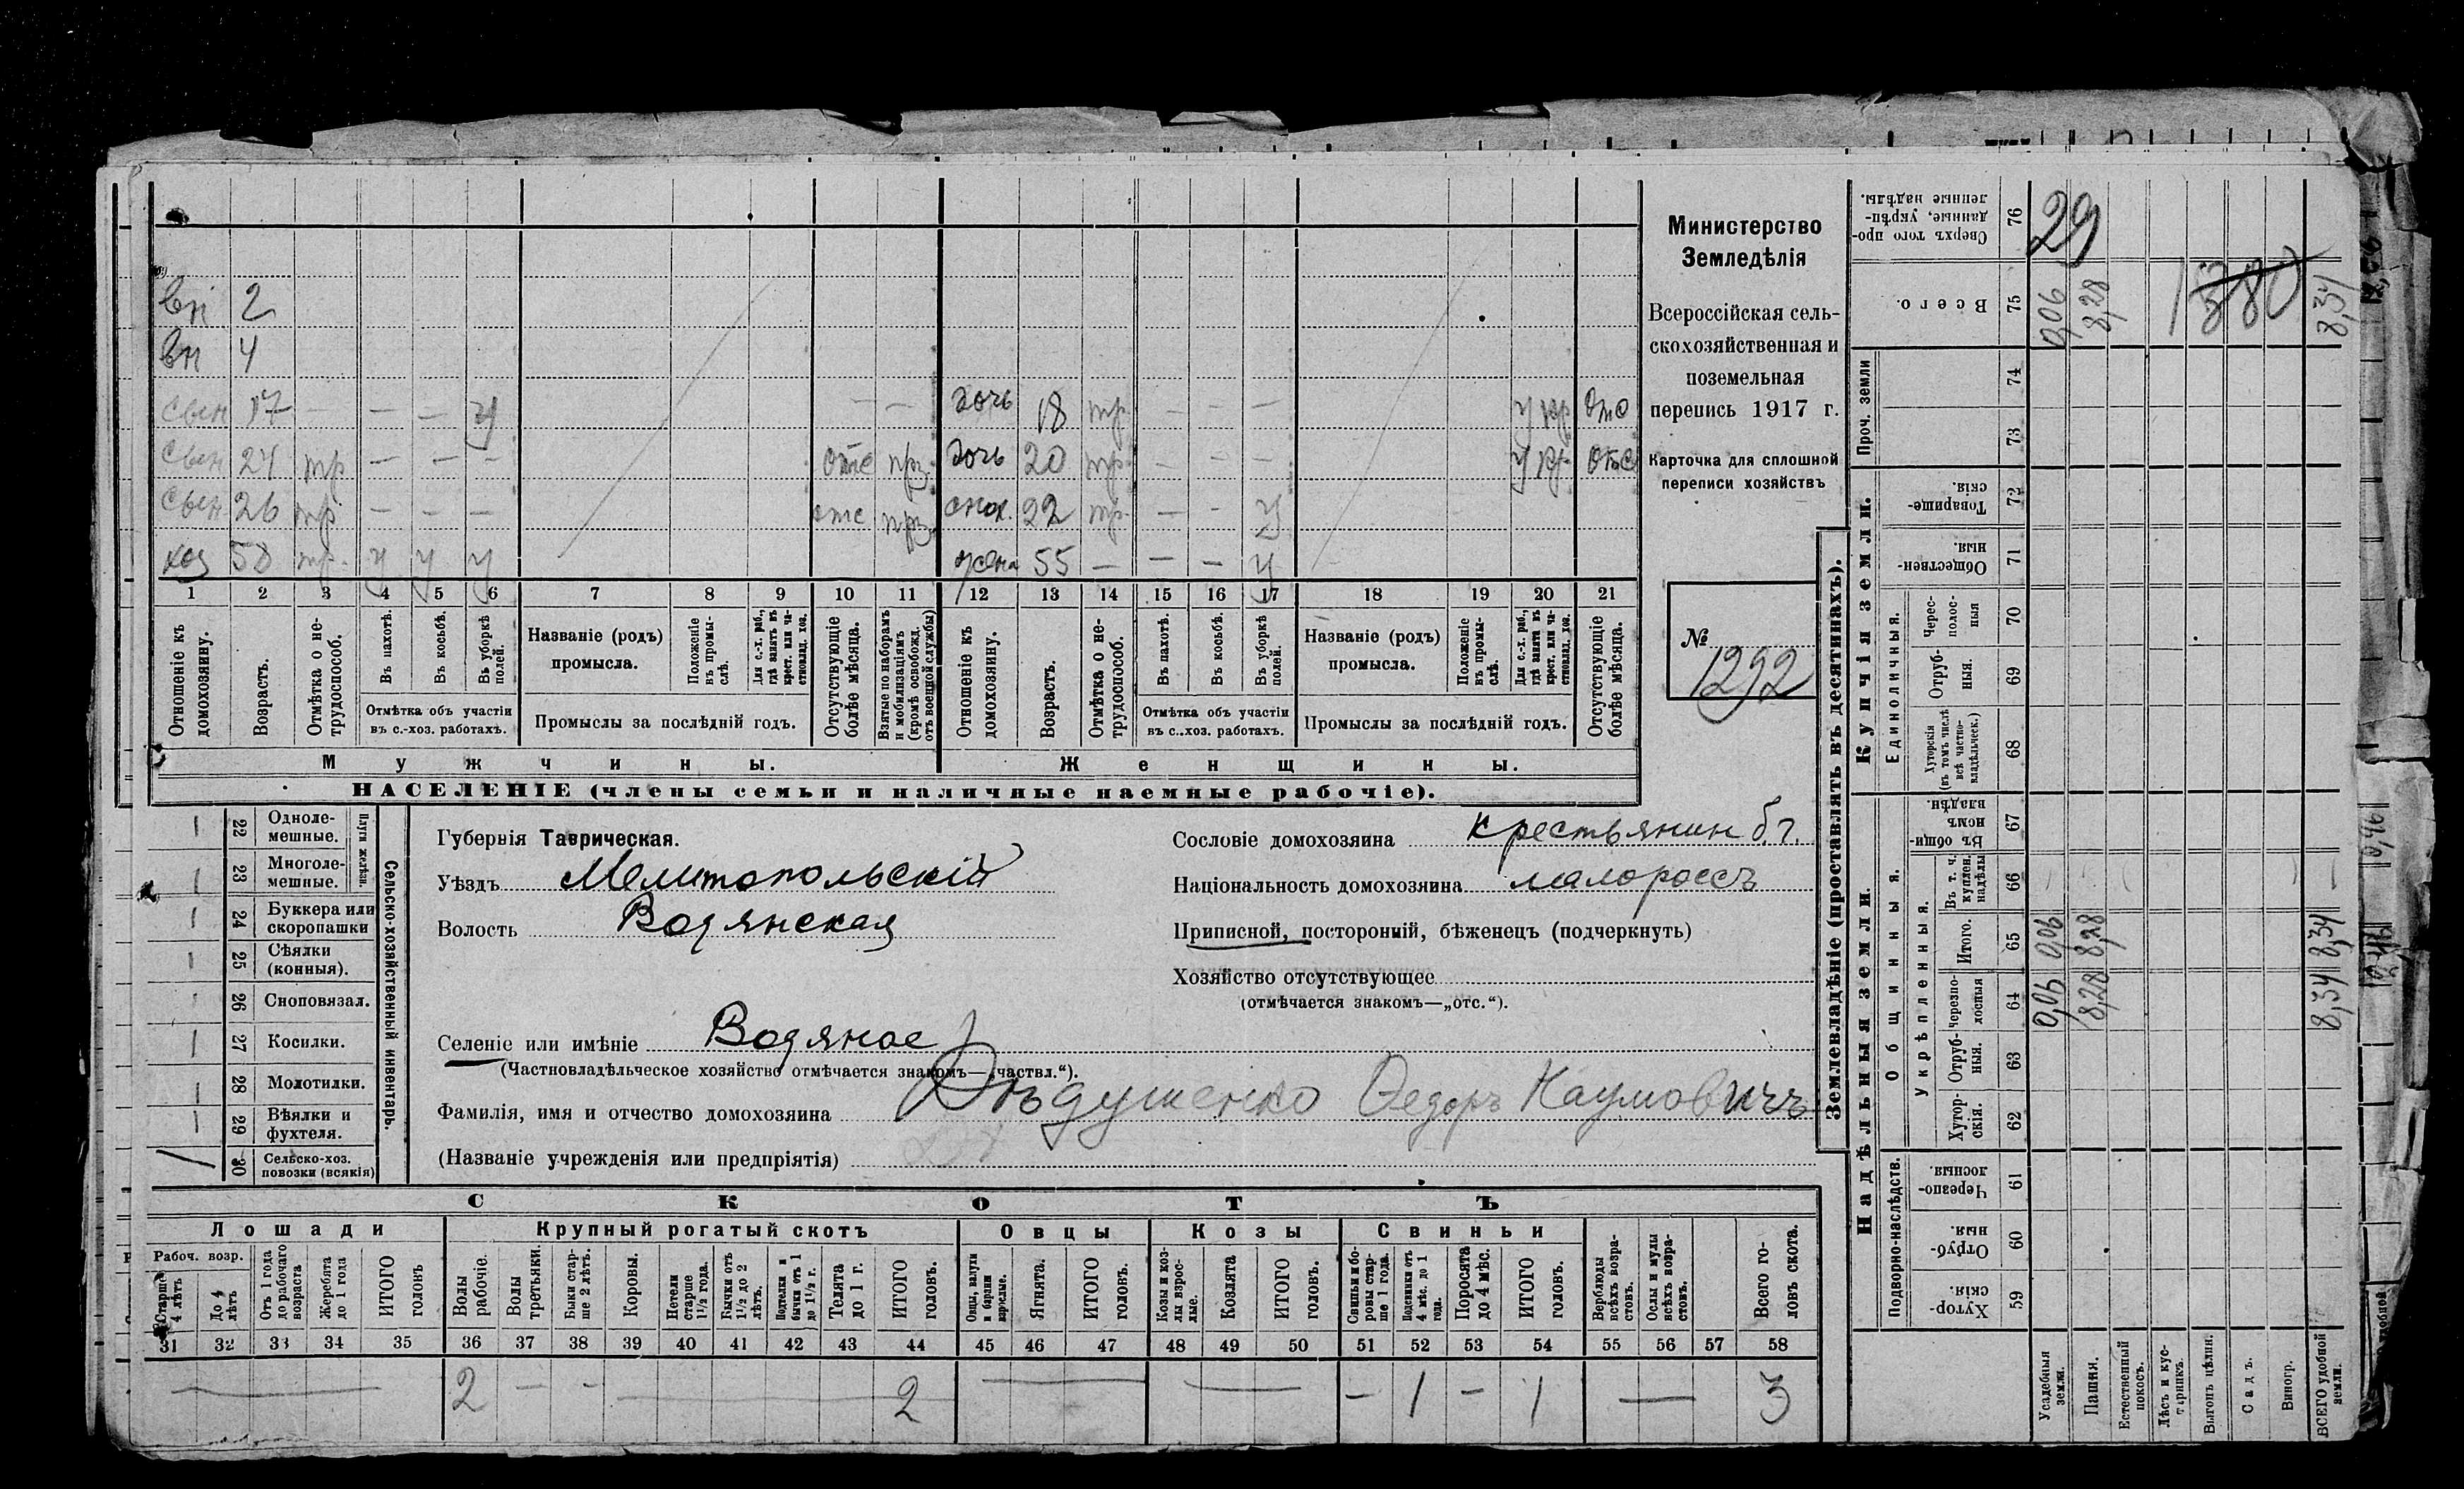 вн 2
вн 4
сын 17 — — — у — — дочь 18 тр — — — у кр отс
сын 24 тр — — — отс прз. дочь 20 тр — — — у кр. отс
сын 26 тр — — — отс прз. снох. 22 тр — - у
хоз 58 тр. у у у жена 55 — — — у
1 2 3 4 5 6 7 8 9 10 11 12 13 14 15 16 17 18 19 20 21
Отношеніе къ домохозяину.
Возрастъ.
Отмѣтка о нетрудоспособ.
Въ пахотѣ.
Въ косьбѣ.
Въ уборкѣ полей.
Отмѣтка объ участіи въ с.-хоз. работахъ.
Названіе (родъ) промысла.
Положеніе въ промыслѣ.
Для с.-х. раб., гдѣ занятъ въ крест. или частновлад. хоз.
Промыслы за послѣдній годъ.
Отсутствующіе болѣе мѣсяца.
Взятые по наборамъ и мобилизаціямъ (кромѣ освобожд. отъ военной службы)
Отношеніе къ домохозяину.
Возрастъ.
Отмѣтка о нетрудоспособ.
Въ пахотѣ.
Въ косьбѣ.
Въ уборкѣ полей.
Отмѣтка объ участіи въ с..хоз. работахъ.
Названіе (родъ) промысла.
Положеніе въ промыслѣ.
Для с.-х. раб., гдѣ занятъ въ крест. или частновлад. хоз.
Промыслы за послѣдній годъ.
Отсутствующіе болѣе мѣсяца.
Мужчины. Женщины.
НАСЕЛЕНІЕ (члены семьи и наличные наемные рабочіе).
Министерство
Земледѣлія
Всероссійская сель-
скохозяйственная и
поземельная
перепись 1917 г.
Карточка для сплошной
переписи хозяйствъ
№
1292
22 Одноле-мешные.
23 Многоле-мешные.
Плуги желѣзн.
24 Буккера или скоропашки
25 Сѣялки (конныя).
26 Сноповязал.
27 Косилки.
28 Молотилки.
29 Вѣялки и фухтеля.
30 Сельско-хоз. повозки (всякія)
Сельско-хозяйственный инвентарь.
Губернія Таврическая.
Уѣздъ Мелитопольскій
Волость Водянская
Селеніе или имѣніе Водяное
(Частновладѣльческое хозяйство отмѣчается знакомъ—„частвл.“).
Фамилія, имя и отчество домохозяина Федоръ Наумовичъ
(Названіе учрежденія или предпріятія)
Сословіе домохозяина крестьянин б.г.
Національность домохозяина малороссъ
Приписной, посторонній, бѣженецъ (подчеркнуть)
Хозяйство отсутствующее
(отмѣчается знакомъ—„отс.“).
СКОТЪ
Лошади Крупный рогатый скотъ Овцы Козы Свиньи
Рабоч. возр.
Старше 4 лѣтъ
До 4 лѣтъ
Отъ 1 года до рабочаго возраста
Жеребята до 1 года
ИТОГО головъ
Волы рабочіе.
Волы третьяки.
Быки старше 2 лѣтъ.
Коровы.
Нетели старше 1½ года.
Бычки отъ 1½ до 2 лѣтъ.
бычки отъ 1 до 1½ г.
Телята до 1 г.
ИТОГО головъ.
Овцы, валухи и бараны взрослые.
Ягнята.
ИТОГО головъ.
Козы и козлы взрослые.
Козлята
ИТОГО головъ.
Свиньи и боровы старше 1 года.
Подсвинки отъ 4 мѣс. до 1 года.
Поросята до 4 мѣс.
ИТОГО головъ.
Верблюды всѣхъ возрастовъ.
Ослы и мулы всѣхъ возрастовъ.
Всего головъ скота.
31 32 33 34 35 36 37 38 39 40 41 42 43 44 45 46 47 48 49 50 51 52 53 54 55 56 57 58
— 2 — - — 2 — — - 1 - 1 — 3
Землевладѣніе (проставлять въ десятинахъ).
Надѣльныя земли. Купчія земли. Проч. земли
Подворно-наслѣдств. Общинныя. Единоличныя.
Укрѣпленныя.
Хуторскія. 59
Отрубныя. 60
Черезполосныя. 61
Хуторскія. 62
Отрубныя. 63
Черезполосныя 64
Итого. 65
Въ т. ч. куплен. надѣлы 66
Въ общинномъ владѣн. 67
Хуторскія (въ томъ числѣ всѣ частновладѣльческ.) 68
Отрубныя. 69
Череcполосныя 70
Общественныя. 71
Товарищескія. 72
73
74
Всего. 75
Сверхъ того проданные, укрѣпленные надѣлы. 76
Усадебныя земли. 0,06 0,06 0,06
Пашня. 8,28 8,28 8,28
Естественный покосъ.
Лѣсъ и кустарникъ.
Выгонъ цѣлин.
Садъ.
Виногр.
ВСЕГО удобной земли. 8,34 8,34 8,34
29